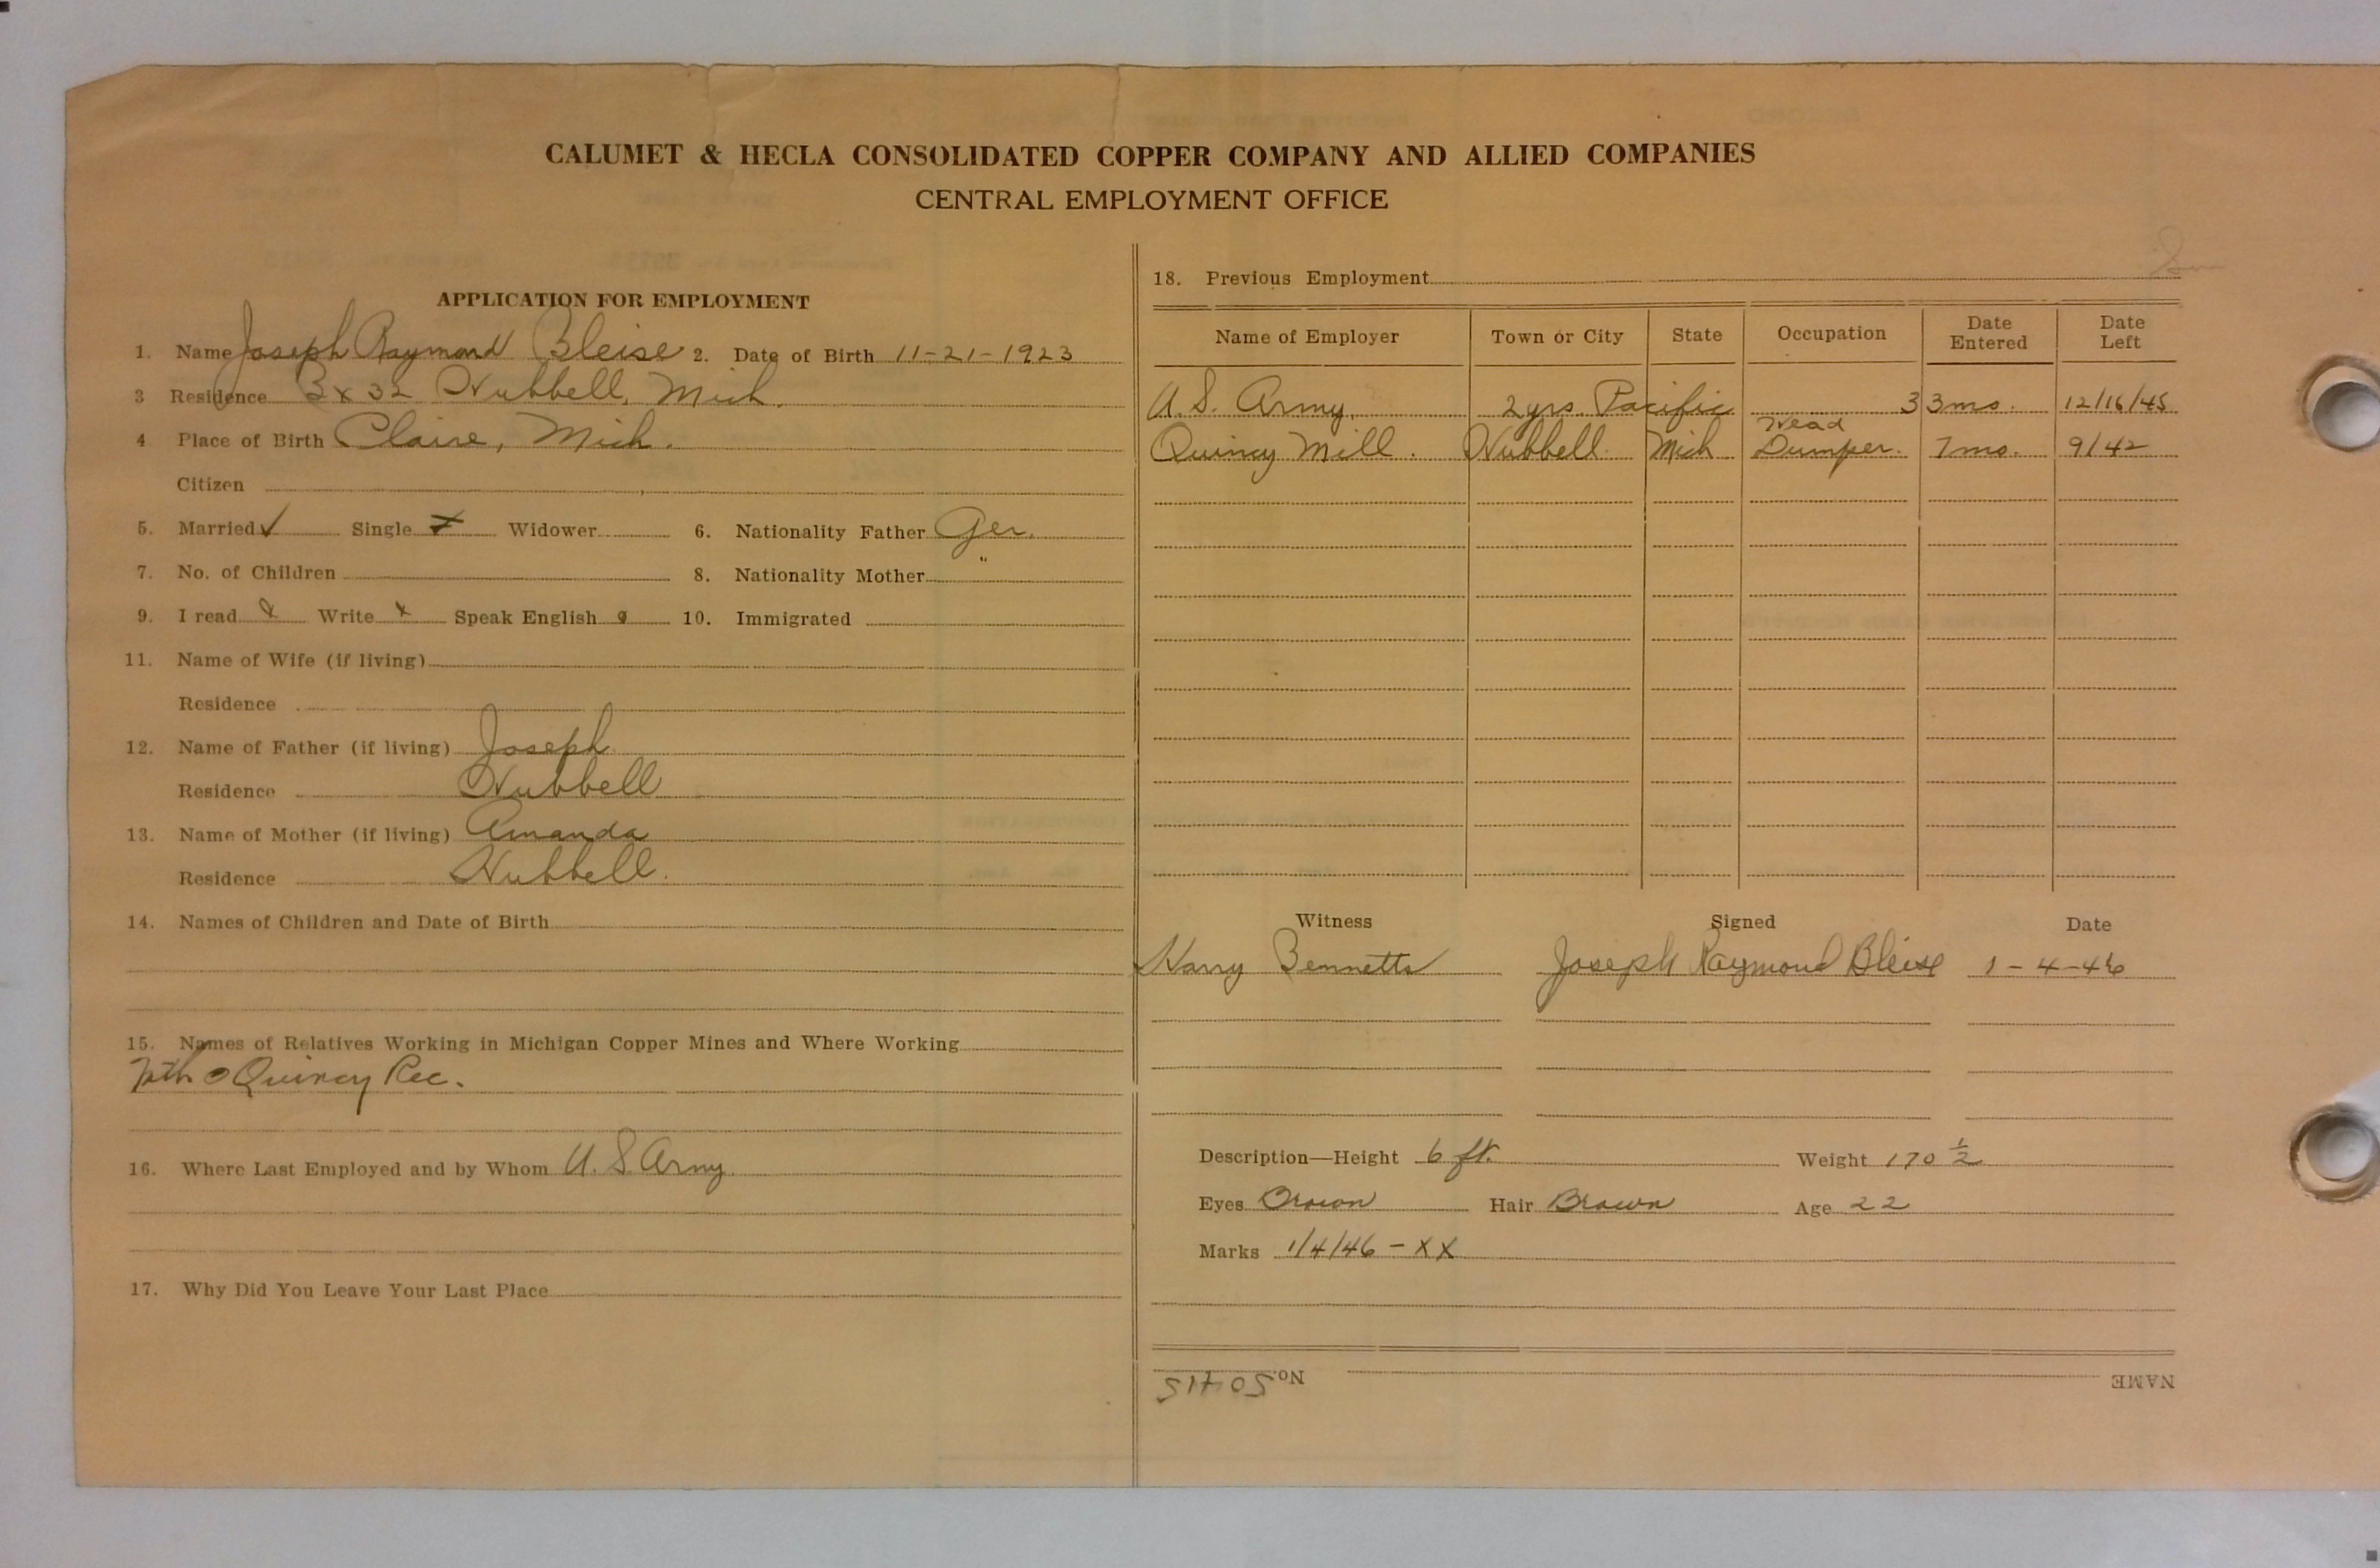 CALUMET & HECLA CONSOLIDATED COPPER COMPANY AND ALLIED COMPANIES
CENTRAL EMPLOYMENT OFFICE
APPLICATION FOR EMPLOYMENT
1. Name Joseph Raymond Bleise 2. Date of Birth 11-21-1923
3 Residence Bx 32 Hubbell, Mich.
4 Place of Birth Claire, Mich.
Citizen
5. Married ✓ Single x Widower 6. Nationality Father Ger.
7. No. of Children 8. Nationality Mother "
9. I read x Write x Speak English 10. Immigrated
11. Name of Wife (if living)
Residence
12. Name of Father (if living) Joseph
Residence Hubbell
13. Name of Mother (if living) Amanda
Residence Hubbell.
14. Names of Children and Date of Birth
15. Names of Relatives Working in Michigan Copper Mines and Where Working
Quincy Rec.
16. Where Last Employed and by Whom U. S. Army.
17. Why Did You Leave Your Last Place
18. Previous Employment
Name of Employer Town or City State Occupation Date Entered Date Left
U. S. Army. 2 yrs. Pacific 33 mo. 12/16/45
Quincy Mill. Hubbell. Mich Head Dumper. 7 mo. 9/42
Witness Signed Date
Harry Bennetts Joseph Raymond Bleise 1-4-46
Description—Height 6 ft. Weight 170 1/2
Eyes Brown Hair Brown Age 22
Marks 1/4/46 - XX
No. 50415 NAME